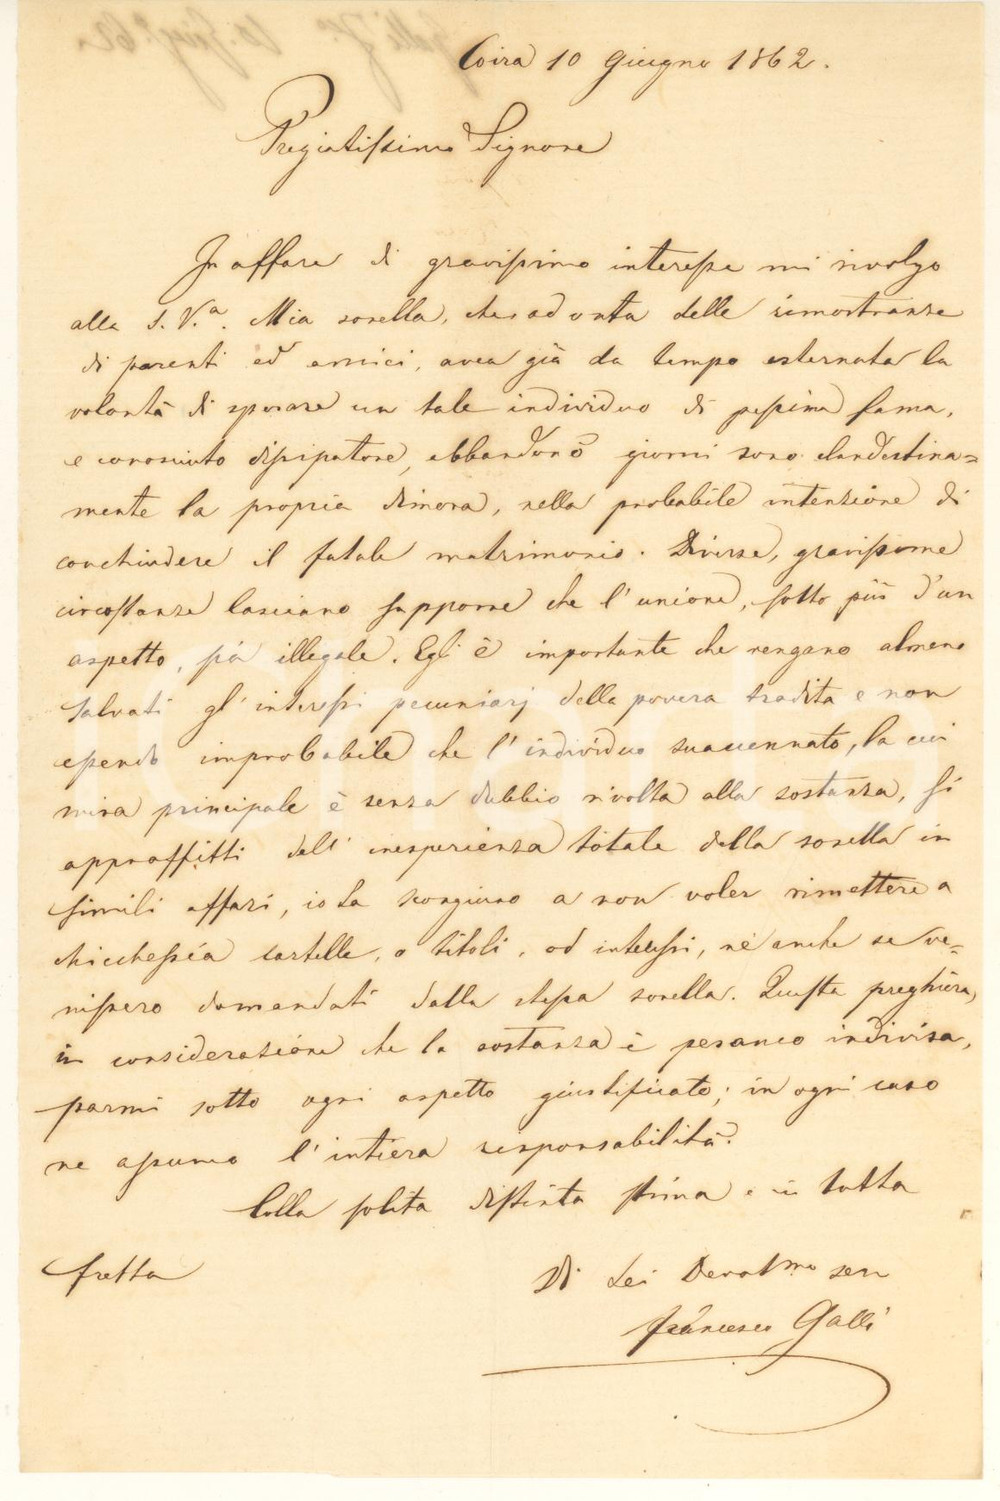 Coira 10 Giugno 1862.
Pregiatissimo Signore
In affare di gravissimo interesse mi rivolgo
alla S. V.a. Mia sorella, che ad onta delle rimostranze
di parenti ed amici, avea già da tempo esternata la
volontà di sposare un tale individuo di pessima fama,
e conosciuto dissipatore, abbandonò giorni sono clandestina=
mente la propria dimora, nella probabile intenzione di
conchiudere il fatale matrimonio. Diverse, gravissime
circostanze lasciano supporre che l'unione, sotto più d'un
aspetto, sia illegale. Egli è importante che vengano almeno
salvati gl'interessi pecuniarj della povera tradita e non
essendo improbabile che l'individuo suaccennato, la cui
mira principale è senza dubbio rivolta alla sostanza, si
approffitti dell'inesperienza totale della sorella in
simili affari, io La scongiuro a non voler rimettere a
chicchessia cartelle, o titoli, od interessi, nè anche se ve=
nissero domandati dalla stessa sorella. Questa preghiera,
in considerazione che la sostanza è peranco indivisa,
parmi sotto ogni aspetto giustificata; in ogni caso
ne assumo l'intiera responsabilità.
Colla solita distinta stima e in tutta
fretta
Di Lei Devotmo serv
Francesco Galli